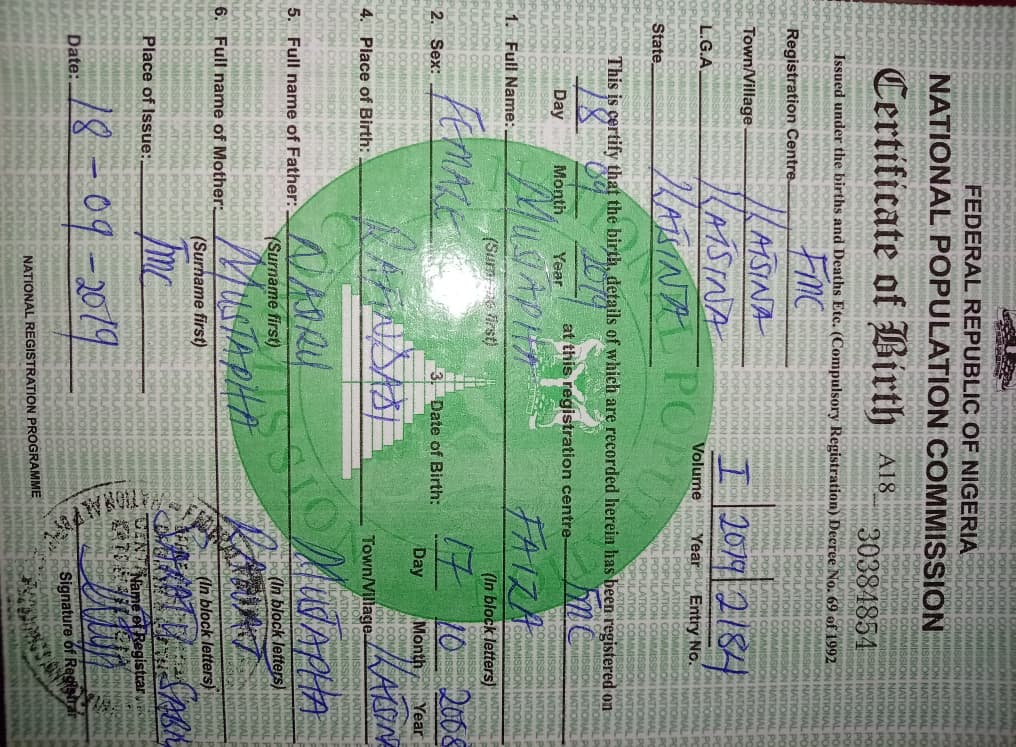 FEDERAL REPUBLIC OF NIGERIA
NATIONAL POPULATION COMMISSION
Certificate of Birth A18 30384854
Issued under the births and Deaths Etc. (Compulsory Registration) Decree No. 69 of 1992
Registration Centre FMC
Town/Village KATSINA I 2019 2184
L.G.A KATSINA Volume Year Entry No.
State KATSINA
This is certify that the birth, details of which are recorded herein has been registered on
18 09 2019 at this registration centre FMC
Day Month Year
1. Full Name: MUSTAPHA FAIZA
(Surname first) (In block letters)
2. Sex: FEMALE 3. Date of Birth: 17 10 2008
Day Month Year
4. Place of Birth: Town/Village KATSINA
5. Full name of Father: MUSTAPHA
(Surname first) (In block letters)
6. Full name of Mother: MUSTAPHA
(Surname first) (In block letters)
Place of Issue: FMC Name of Registrar
Date: 18-09-2019 Signature of Registrar
NATIONAL REGISTRATION PROGRAMME